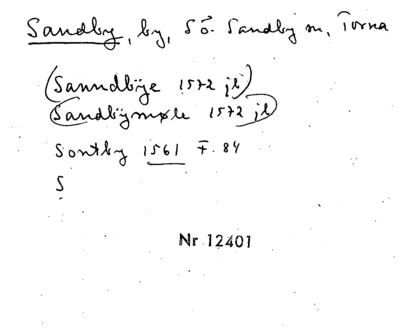 Sandby, by, Sö. Sandby sn, Torna
(Sanndbÿe 1572 jb)
(Sandbÿmøle 1572 jb)
Sontby 1561 F. 84
S
Nr 12401